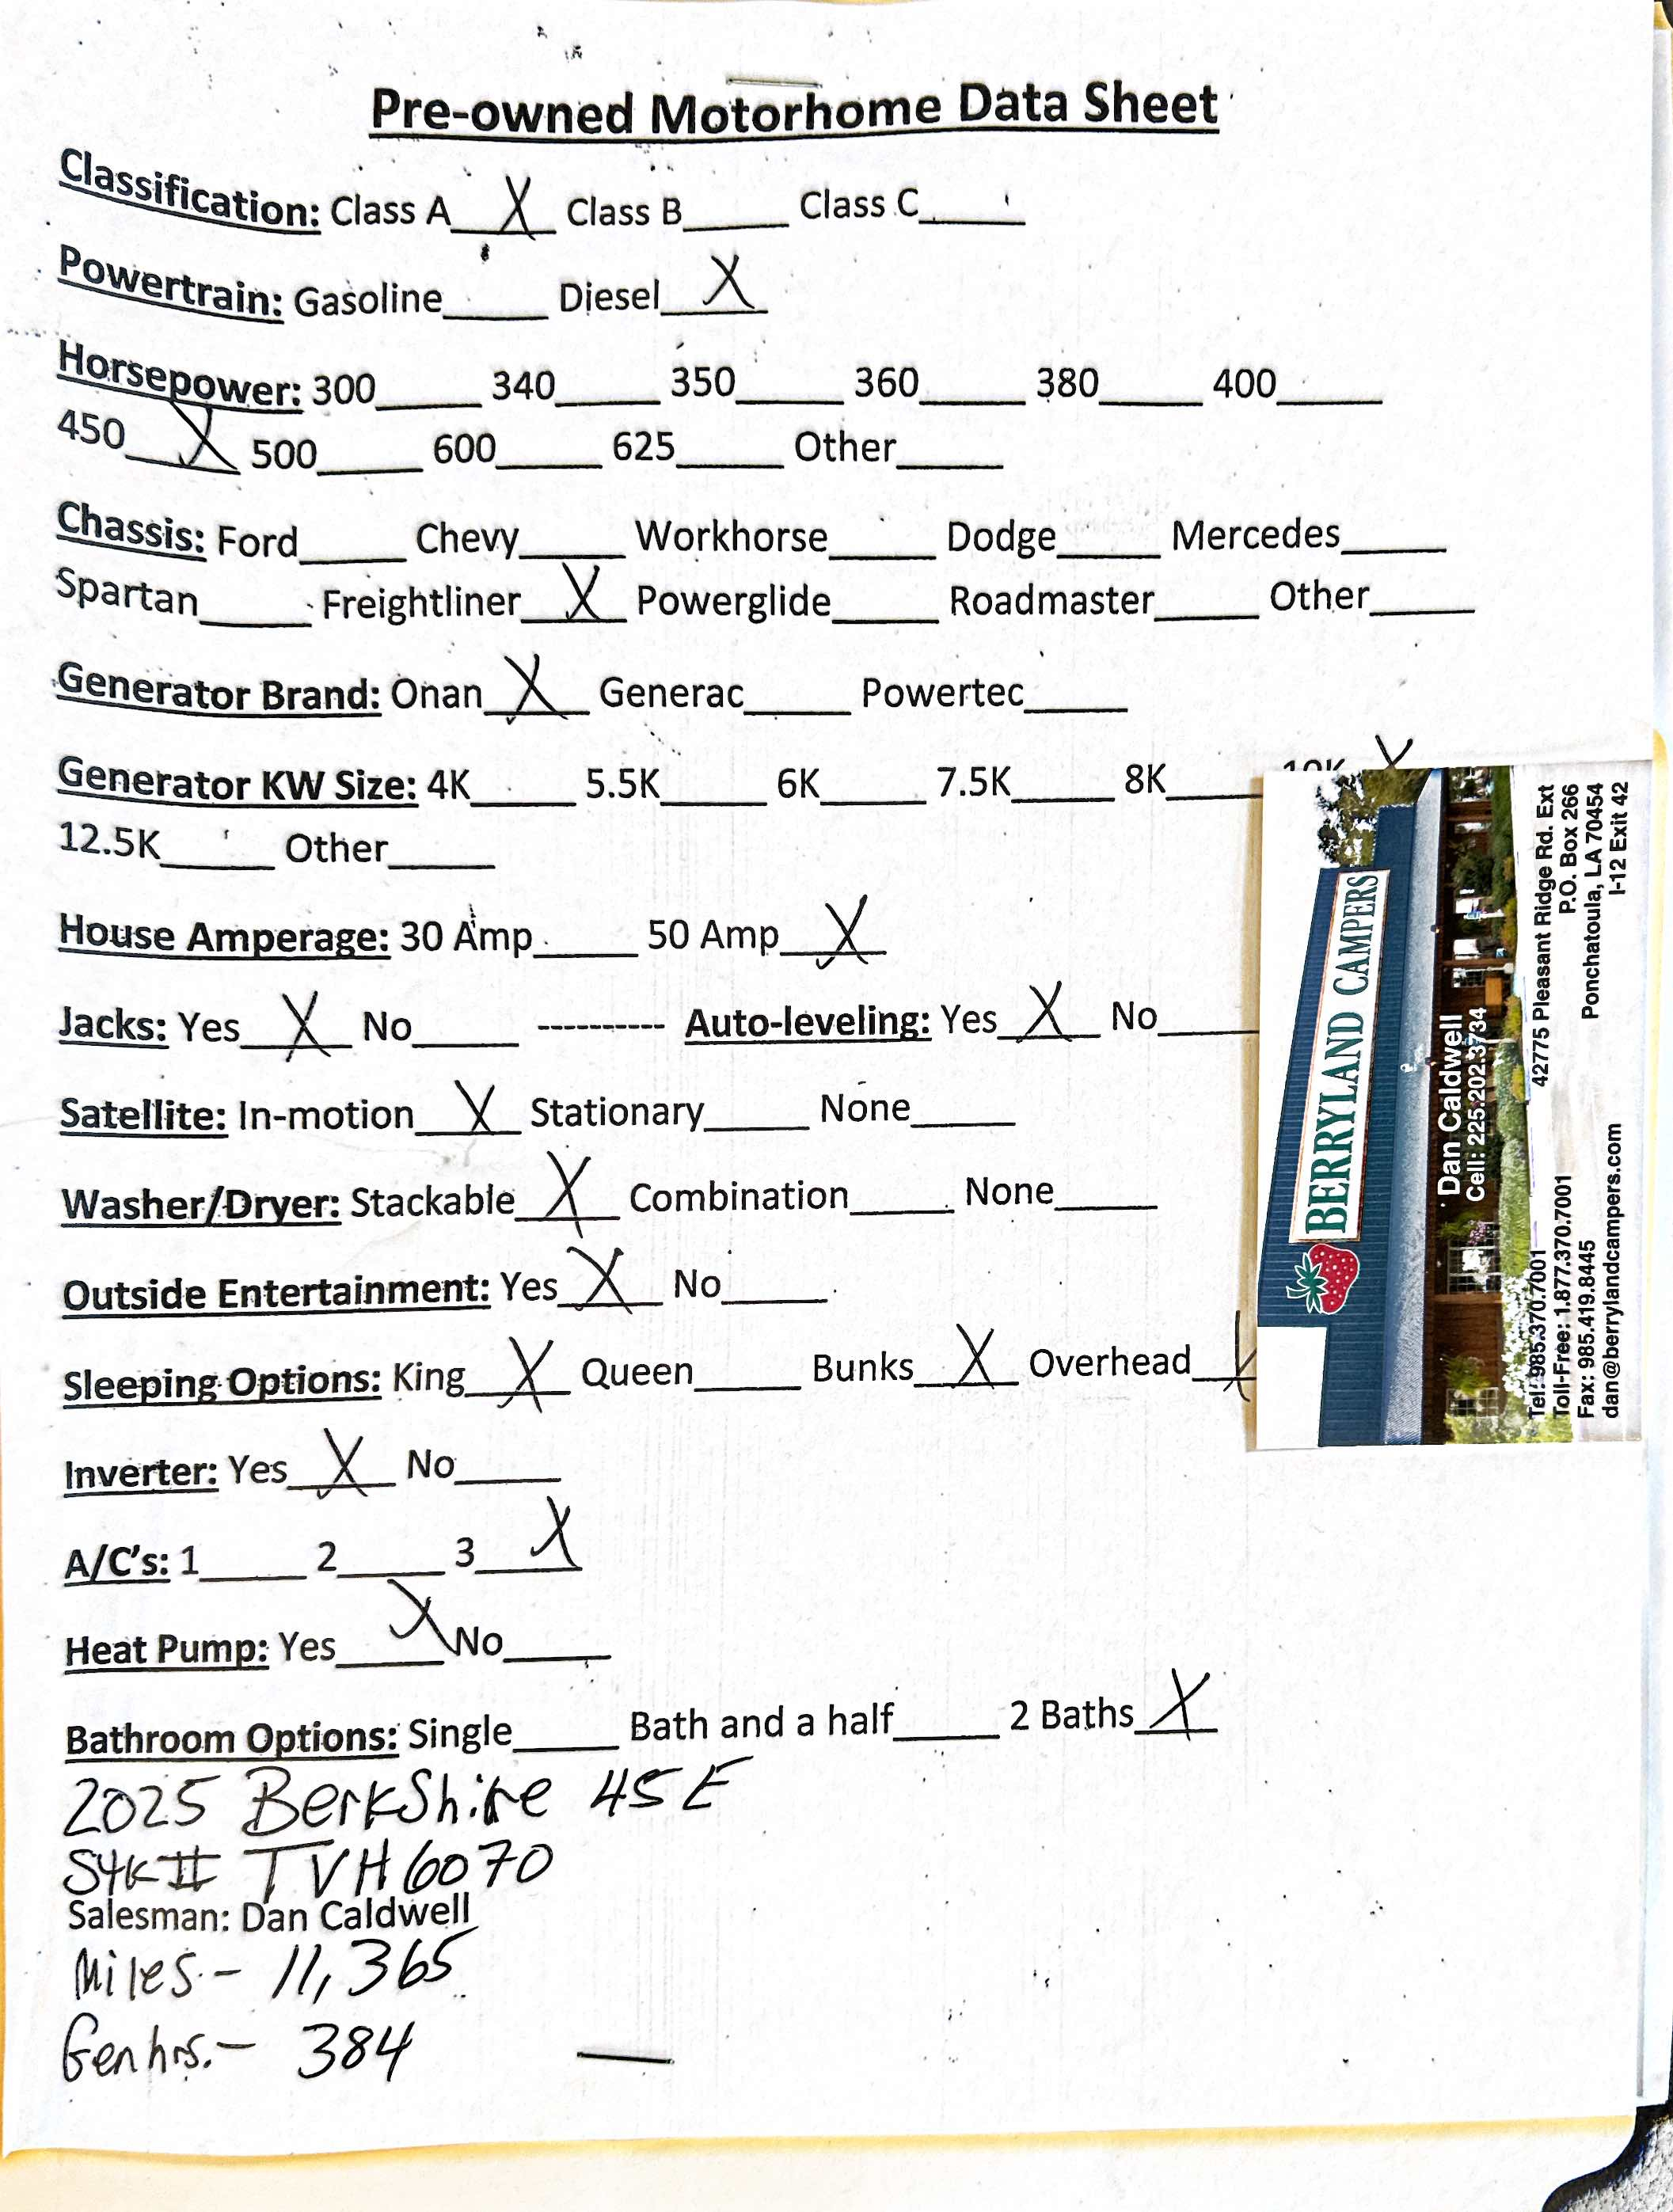 Pre-owned Motorhome Data Sheet
Classification: Class A__X__ Class B_____ Class C_____
Powertrain: Gasoline_____ Diesel__X__
Horsepower: 300_____ 340_____ 350_____ 360_____ 380_____ 400_____
450__X__ 500_____ 600_____ 625_____ Other_____
Chassis: Ford_____ Chevy_____ Workhorse_____ Dodge_____ Mercedes_____
Spartan_____ Freightliner__X__ Powerglide_____ Roadmaster_____ Other_____
Generator Brand: Onan__X__ Generac_____ Powertec_____
Generator KW Size: 4K_____ 5.5K_____ 6K_____ 7.5K_____ 8K_____ 10K X
12.5K_____ Other_____
House Amperage: 30 Amp_____ 50 Amp__X__
Jacks: Yes__X__ No_____ ---------- Auto-leveling: Yes__X__ No_____
Satellite: In-motion__X__ Stationary_____ None_____
Washer/Dryer: Stackable__X__ Combination_____ None_____
Outside Entertainment: Yes__X__ No_____
Sleeping Options: King__X__ Queen_____ Bunks__X__ Overhead__X
Inverter: Yes__X__ No_____
A/C's: 1_____ 2_____ 3__X__
Heat Pump: Yes__X__ No_____
Bathroom Options: Single_____ Bath and a half_____ 2 Baths__X__
2025 BerkShire 45E
Stk# TVH6070
Salesman: Dan Caldwell
Miles - 11,365
Gen hrs. - 384
BERRYLAND CAMPERS
Dan Caldwell
Cell: 225.202.3734
Tel: 985.370.7001
Toll-Free: 1.877.370.7001
Fax: 985.419.8445
dan@berrylandcampers.com
42775 Pleasant Ridge Rd. Ext
P.O. Box 266
Ponchatoula, LA 70454
I-12 Exit 42